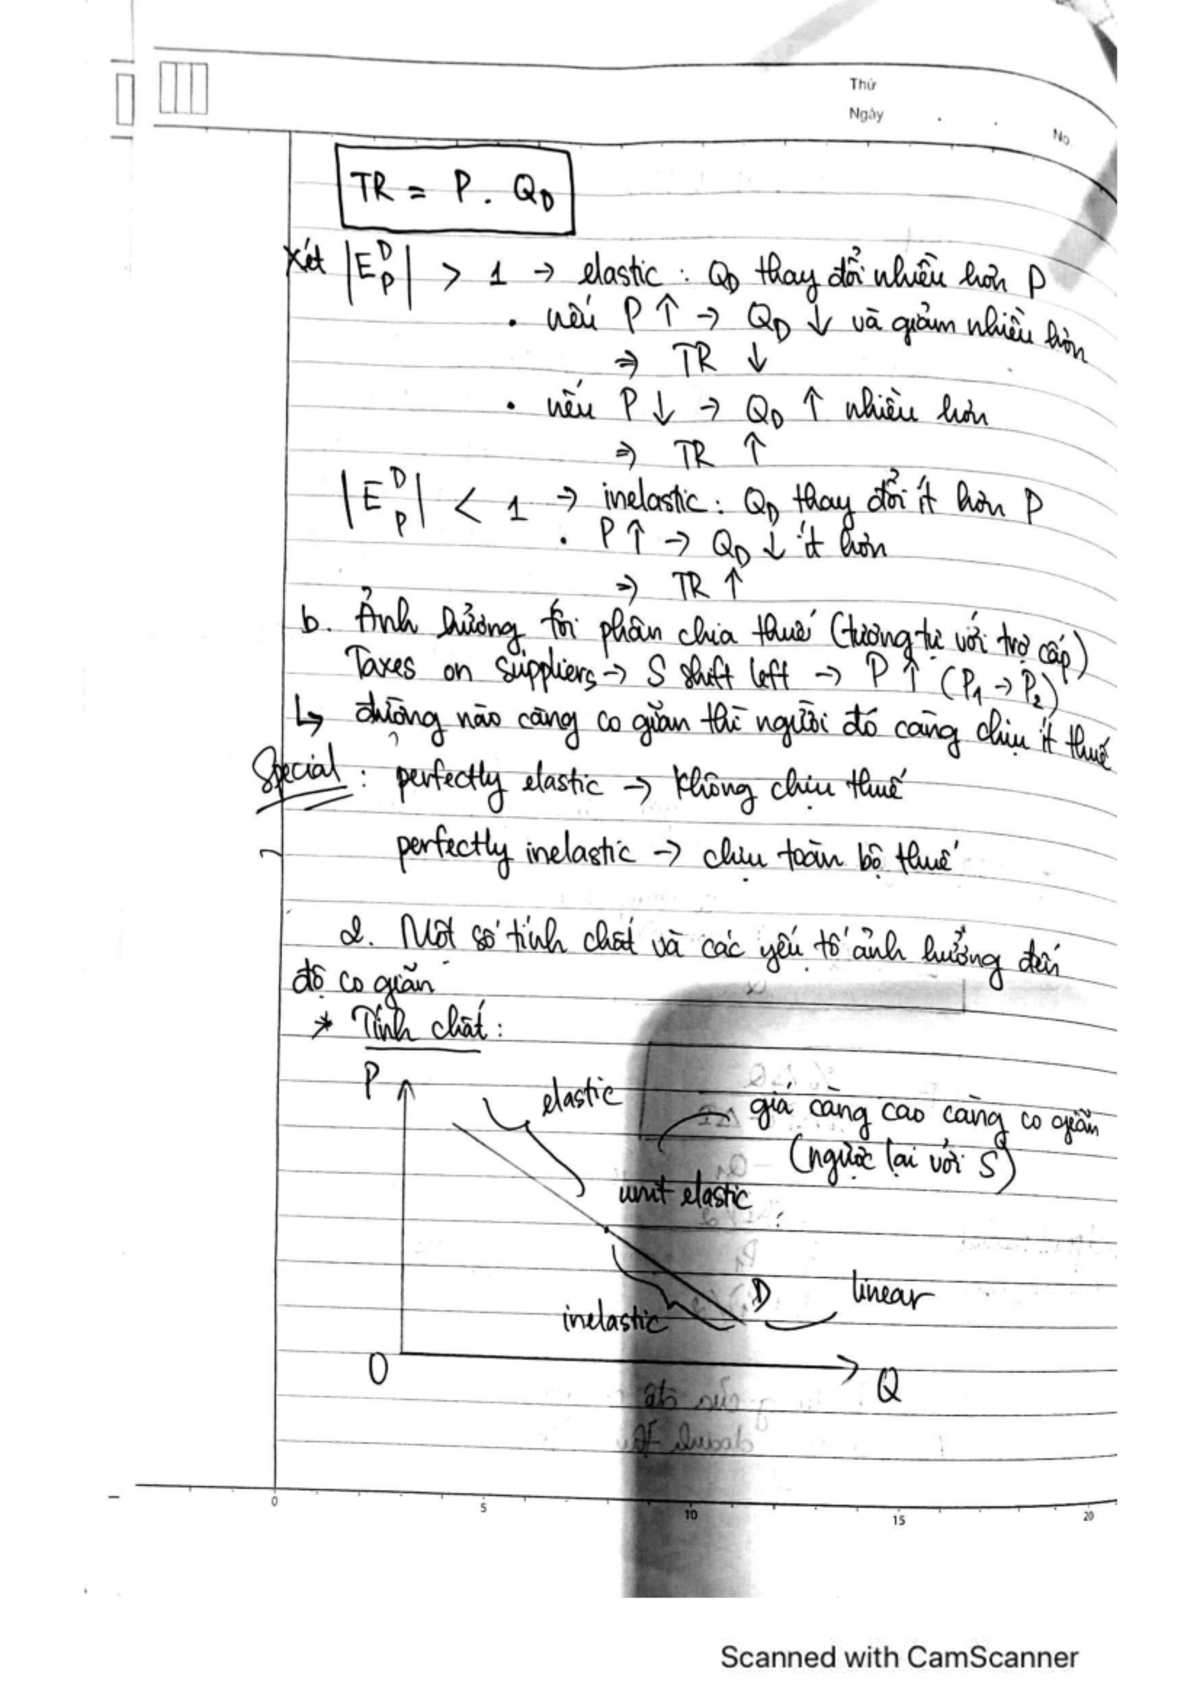 Thứ
Ngày . .
No
TR = P . Q_D
Xét |E^D_P| > 1 → elastic : Q_D thay đổi nhiều hơn P
• nếu P ↑ → Q_D ↓ và giảm nhiều hơn
⇒ TR ↓
• nếu P ↓ → Q_D ↑ nhiều hơn
⇒ TR ↑
|E^D_P| < 1 → inelastic : Q_D thay đổi ít hơn P
• P ↑ → Q_D ↓ ít hơn
⇒ TR ↑
b. Ảnh hưởng tới phân chia thuế (tương tự với trợ cấp)
Taxes on suppliers → S shift left → P ↑ (P₁ → P₂)
↳ đường nào càng co giãn thì người đó càng chịu ít thuế
Special : perfectly elastic → không chịu thuế
perfectly inelastic → chịu toàn bộ thuế
2. Một số tính chất và các yếu tố ảnh hưởng đến
độ co giãn
* Tính chất :
P
elastic
giá càng cao càng co giãn
(ngược lại với S)
unit elastic
D
linear
inelastic
O
Q
0 5 10 15 20
Scanned with CamScanner